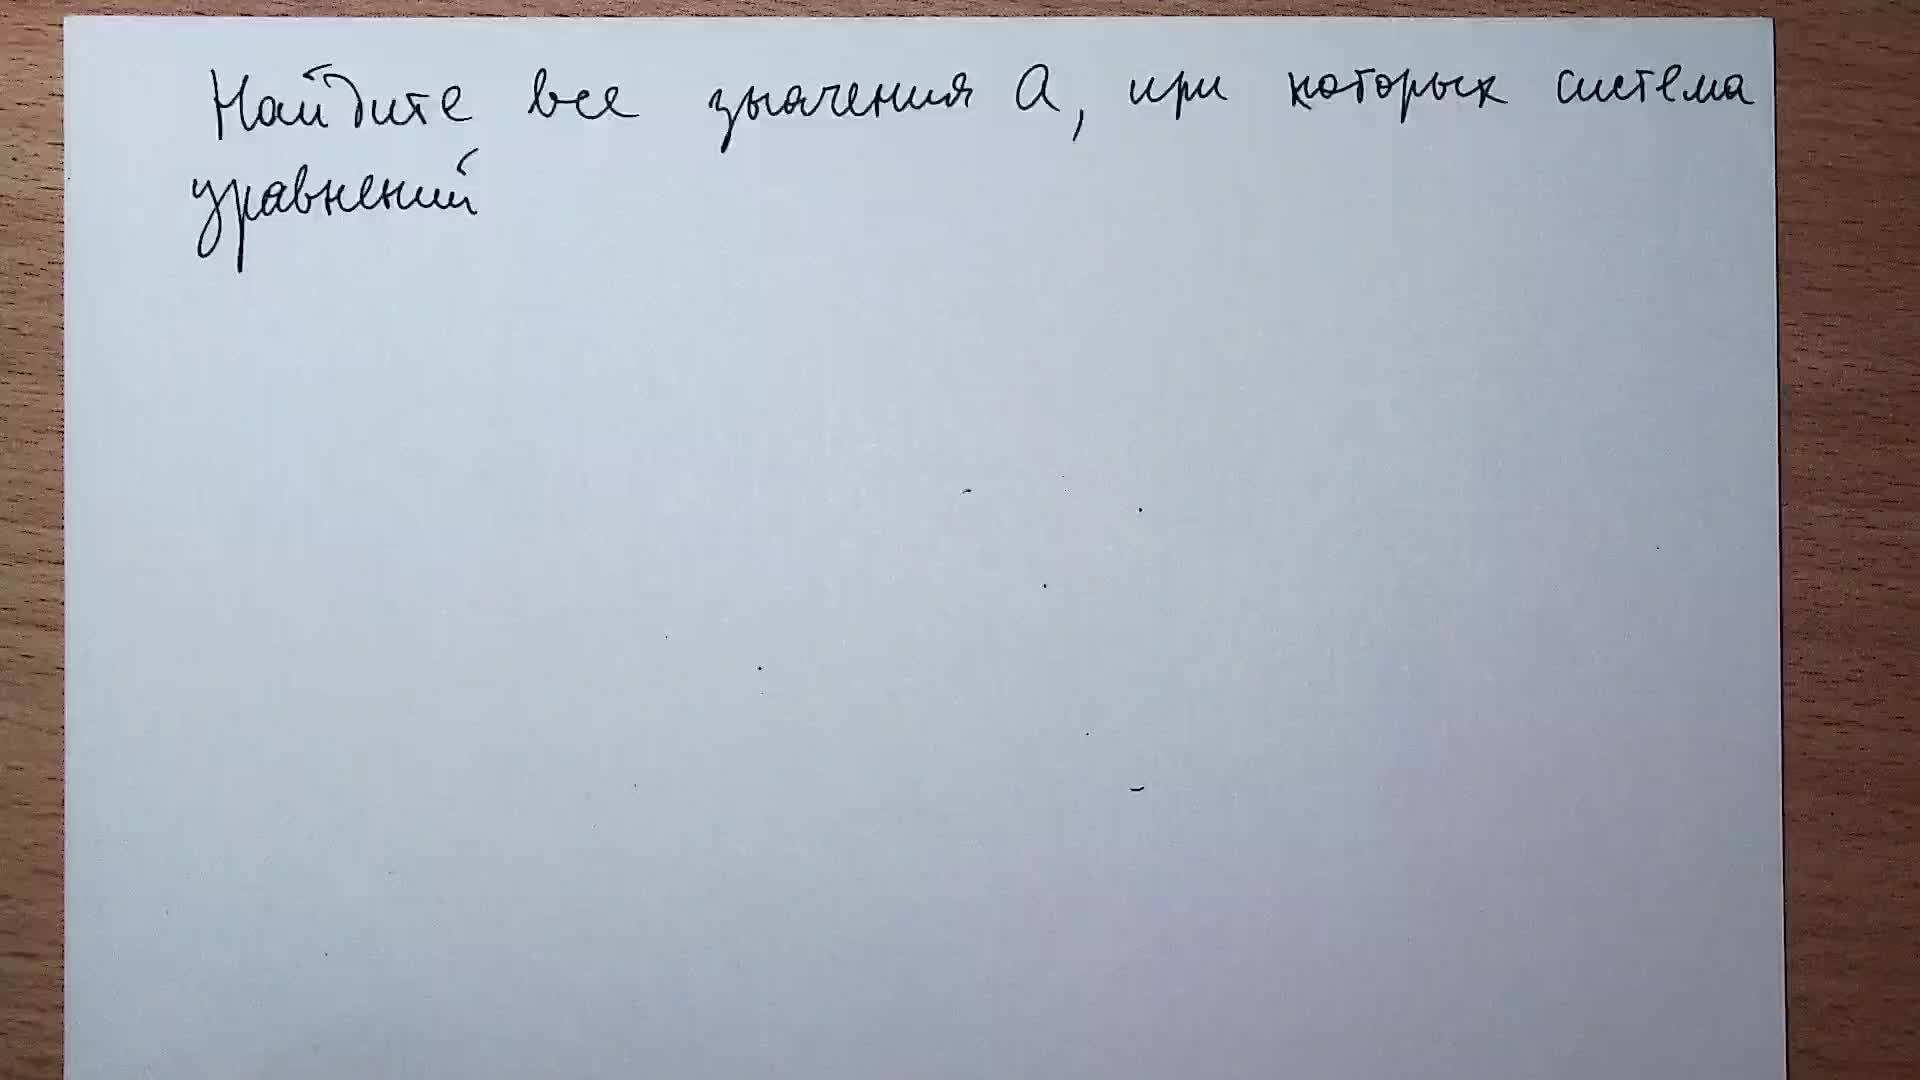 Найдите все значения a, при которых система
уравнений